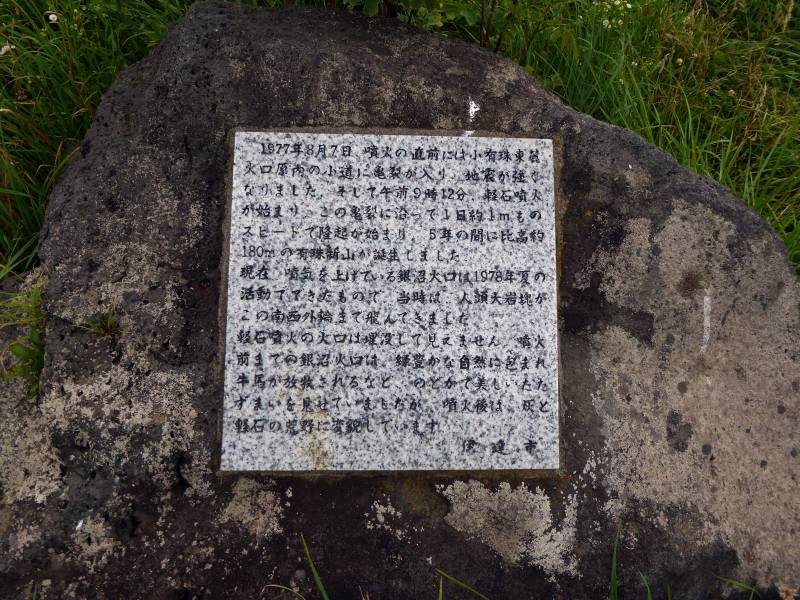 1977年8月7日、噴火の直前には小有珠東麓
火口原内の小道に亀裂が入り、地震が強く
なりました。そして午前9時12分、軽石噴火
が始まり、この亀裂に沿って1日約1mもの
スピードで隆起が始まり、5年の間に比高約
180mの有珠新山が誕生しました。
現在、噴気を上げている銀沼火口は1978年夏の
活動でできたもので、当時は、人頭大岩塊が
この南西外輪まで飛んできました。
軽石噴火の火口は埋没して見えません。噴火
前までの銀沼火口は、緑豊かな自然に包まれ
牛馬が放牧されるなど、のどかで美しいたた
ずまいを見せていましたが、噴火後は、灰と
軽石の荒野に変貌しています。
伊達市